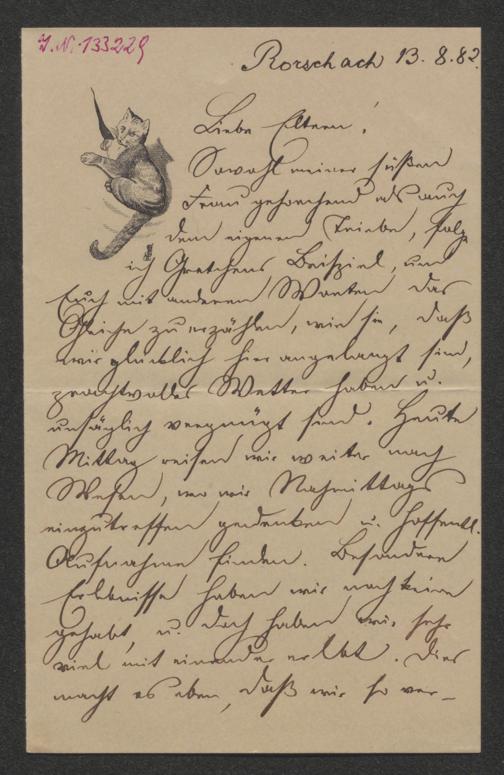 J. N. 133229
Rorschach 13. 8. 82.
Liebe Eltern!
Sowohl meiner süßen
Frau gehorchend als auch
dem eigenen Triebe, folge
ich Gretchens Beispiel, um
Euch mit anderen Worten das
Gleiche zu erzählen, wie sie, daß
wir glücklich hier angelangt sind,
prachtvolles Wetter haben u.
unsäglich vergnügt sind. Heute
Mittag reisen wir weiter nach
Wesen, wo wir Nachmittags
einzutreffen gedenken u. hoffentl.
Aufnahme finden. Besondere
Erlebnisse haben wir noch keine
gehabt, u. doch haben wir sehr
viel mit einander erlebt. Dies
macht es eben, daß wir so ver-